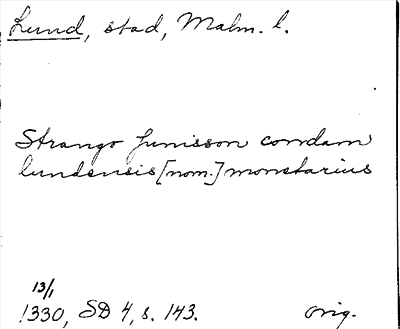 Lund, stad, Malm. l.
Strango Junisson condam
lundensis [nom.] monetarius
13/1
1330, SD 4, s. 143. orig.